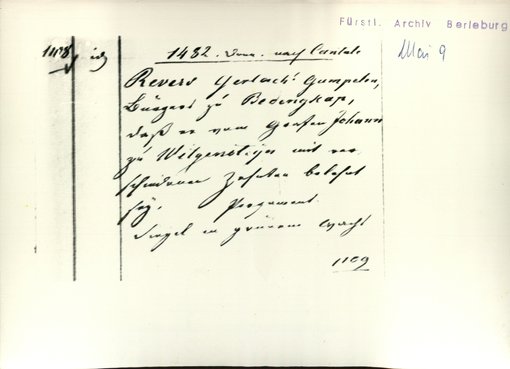 Fürstl. Archiv Berleburg
Mai 9
1482. Donn. nach Cantate
Revers Gerlach Gumpeln,
Bürgers zu Bedengkap,
daß er vom Grafen Johann
zu Witgenstein mit ver
schiedenen Zehnten belehnt
sey. Pergament.
Siegel in grünem Wachs
1109